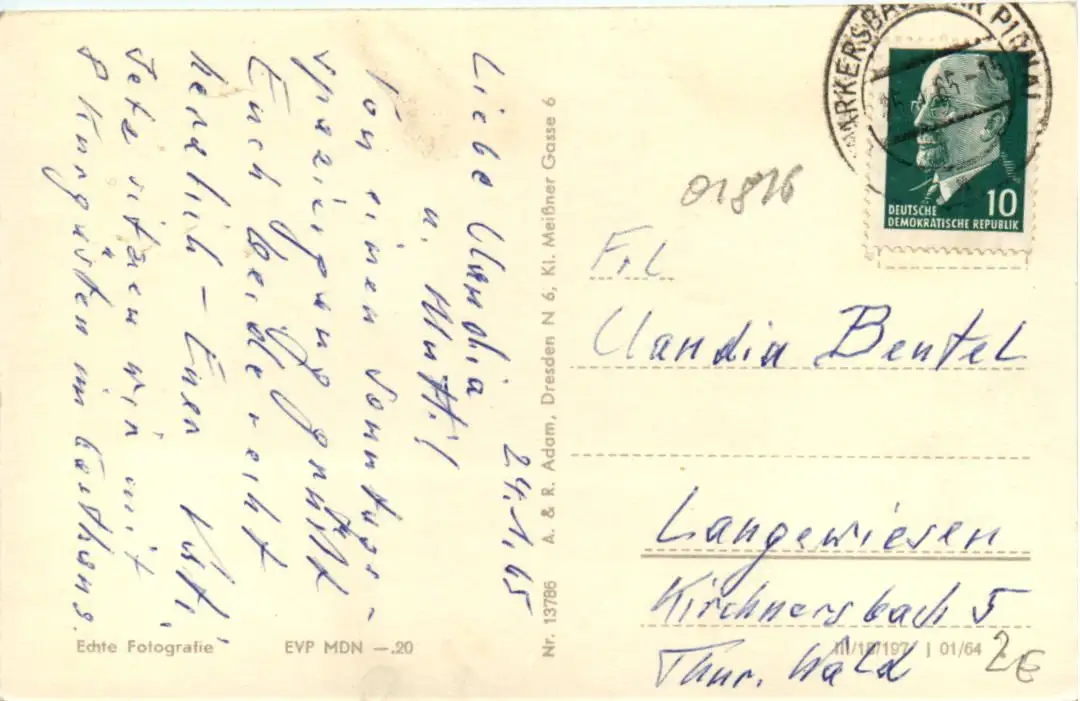 24.1.65
Liebe Claudia
u. Mutti!
Von einem Sonntags-
spaziergang grüßt
Euch beide recht
herzlich – Euer Kurt,
Jetzt sitzen wir mit
8 Kurgästen im Gasthaus.
Echte Fotografie
EVP MDN —.20
Nr. 13786 A. & R. Adam, Dresden N 6, Kl. Meißner Gasse 6
PIRNA
65-15
DEUTSCHE
DEMOKRATISCHE REPUBLIK
10
01816
Frl
Claudia Bentel
Langewiesen
Kirchnersbach 5
Thür. Wald
III/18/197 01/64
2€